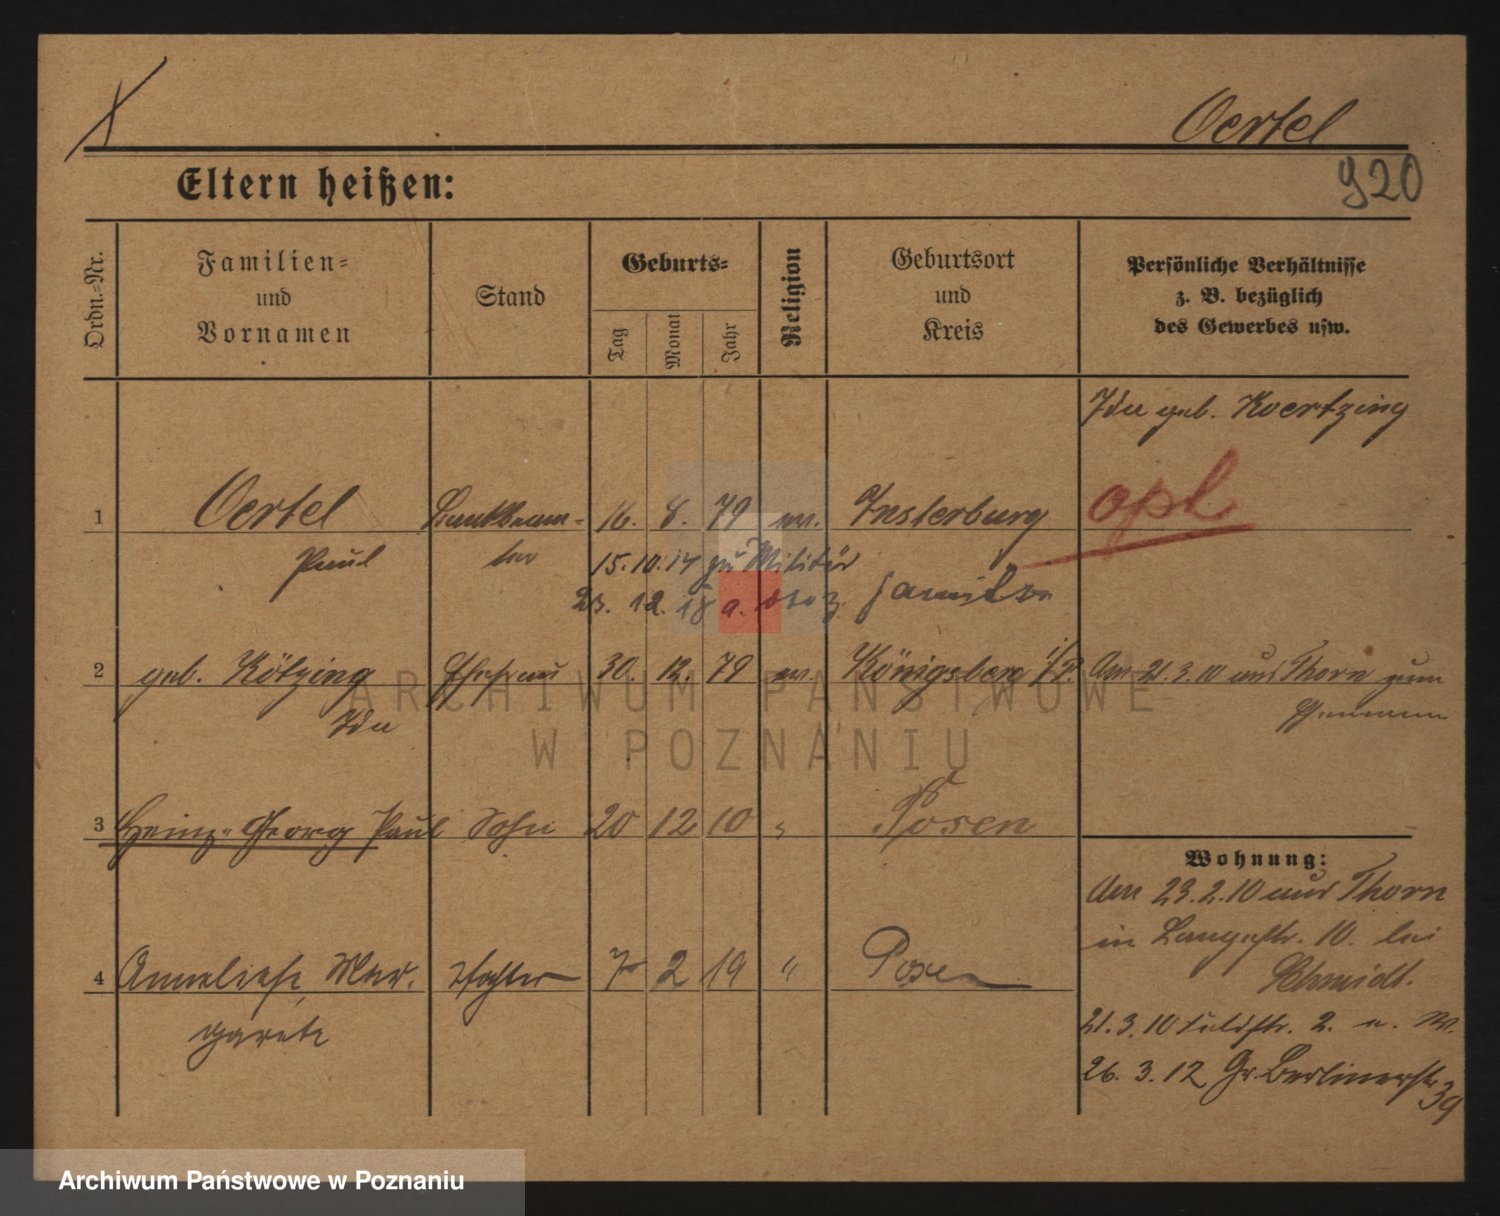 Oertel
920
Eltern heißen:
Ordn.=Nr.
Familien=
und
Vornamen
Stand
Geburts=
Tag
Monat
Jahr
Religion
Geburtsort
und
Kreis
Persönliche Verhältnisse
z. B. bezüglich
des Gewerbes usw.
Ida geb. Koertzing
1 Oertel Bankbeam- 16. 8. 79 ev. Insterburg opt
Paul ter 15.10.14 zu Militär
23. 12. 18 a.
2 geb. Kötzing Ehefrau 30. 12. 79 ev. Königsberg i/P. Am 21.3.10 aus Thorn zum
Ida Ehemann
3 Heinz-Georg Paul Sohn 20 12 10 " Posen
Wohnung:
Am 23.2.10 aus Thorn
in Langestr. 10. bei
4 Anneliese Mar- Tochter 7 2 19 " Posen
Schmidt.
garete
21.3.10 Feldstr. 2. n. W.
26. 3. 12 Gr. Berlinerstr
39
ARCHIWUM PAŃSTWOWE
W POZNANIU
Archiwum Państwowe w Poznaniu